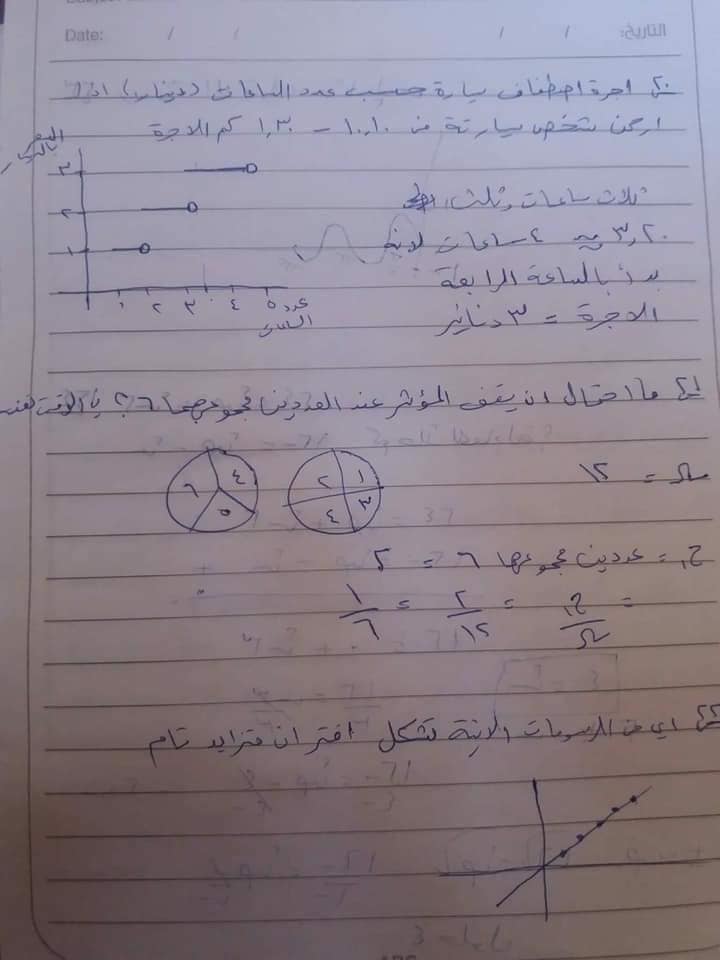 Date: / / / / التاريخ:
٢٠ اجرة اصطفاف سيارة حسب عدد الساعات (دينار) اذا
اركن شخص سيارته من ١٠,١٠ – ١,٣٠ كم الاجرة
السعر
٣
٢
١
١ ٢ ٣ ٤ ٥ عدد
ثلاث ساعات وثلث
٣,٢٠ ← ٤ ساعات لانه
بدأ بالساعة الرابعة
الاجرة = ٣ دنانير
٢١ ما احتمال ان يقف المؤشر عند العددين مجموعهما ٦ ؟
٦ ٤ ٥
٢ ١ ٤ ٣
Ω = ١٢
ح١ = عددين مجموعها ٦ = ٢
= ح١/Ω = ٢/١٢ = ١/٦
٢٢ اي من الرسومات الاتية تشكل اقتران متزايد تام